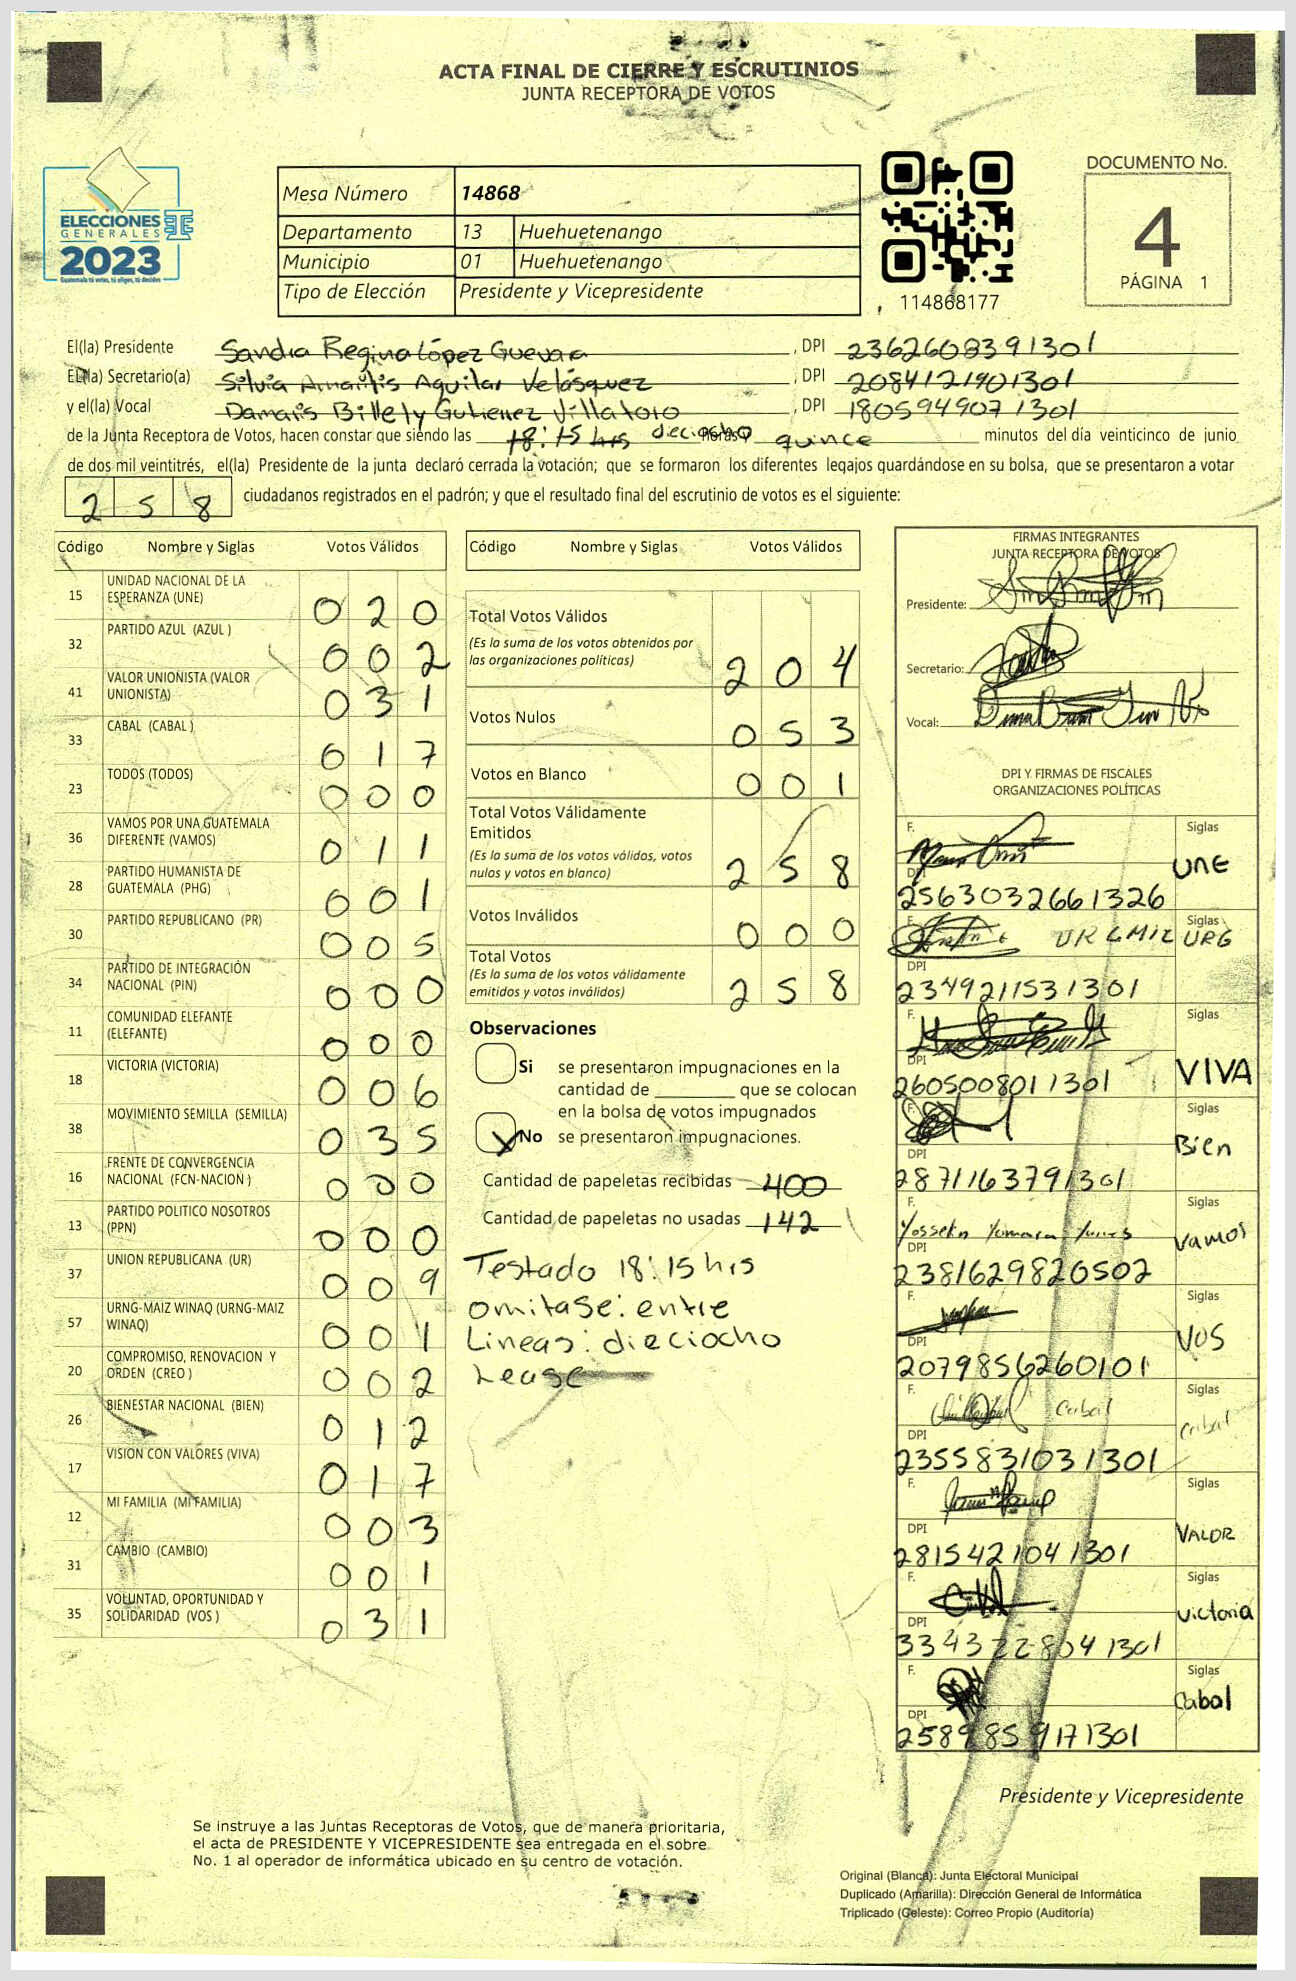 ACTA FINAL DE CIERRE Y ESCRUTINIOS
JUNTA RECEPTORA DE VOTOS
ELECCIONES
GENERALES
2023
Guatemala tú votas, tú eliges, tú decides
Mesa Número 14868
Departamento 13 Huehuetenango
Municipio 01 Huehuetenango
Tipo de Elección Presidente y Vicepresidente
114868177
DOCUMENTO No.
4
PÁGINA 1
El(la) Presidente Sandra Regina López Guevara , DPI 2362608391301
El(la) Secretario(a) Silvia Amarilis Aguilar Velásquez , DPI 2084121901301
y el(la) Vocal Damaris Billely Gutierrez Villatoro , DPI 1805949071301
de la Junta Receptora de Votos, hacen constar que siendo las 18:15 hrs deciocho horas y quince minutos del día veinticinco de junio
de dos mil veintitrés, el(la) Presidente de la junta declaró cerrada la votación; que se formaron los diferentes legajos guardándose en su bolsa, que se presentaron a votar
2 5 8 ciudadanos registrados en el padrón; y que el resultado final del escrutinio de votos es el siguiente:
Código Nombre y Siglas Votos Válidos
15 UNIDAD NACIONAL DE LA ESPERANZA (UNE) 0 2 0
32 PARTIDO AZUL (AZUL ) 0 0 2
41 VALOR UNIONISTA (VALOR UNIONISTA) 0 3 1
33 CABAL (CABAL ) 0 1 7
23 TODOS (TODOS) 0 0 0
36 VAMOS POR UNA GUATEMALA DIFERENTE (VAMOS) 0 1 1
28 PARTIDO HUMANISTA DE GUATEMALA (PHG) 0 0 1
30 PARTIDO REPUBLICANO (PR) 0 0 5
34 PARTIDO DE INTEGRACIÓN NACIONAL (PIN) 0 0 0
11 COMUNIDAD ELEFANTE (ELEFANTE) 0 0 0
18 VICTORIA (VICTORIA) 0 0 6
38 MOVIMIENTO SEMILLA (SEMILLA) 0 3 5
16 FRENTE DE CONVERGENCIA NACIONAL (FCN-NACION ) 0 0 0
13 PARTIDO POLITICO NOSOTROS (PPN) 0 0 0
37 UNION REPUBLICANA (UR) 0 0 9
57 URNG-MAIZ WINAQ (URNG-MAIZ WINAQ) 0 0 1
20 COMPROMISO, RENOVACION Y ORDEN (CREO ) 0 0 2
26 BIENESTAR NACIONAL (BIEN) 0 1 2
17 VISION CON VALORES (VIVA) 0 1 7
12 MI FAMILIA (MI FAMILIA) 0 0 3
31 CAMBIO (CAMBIO) 0 0 1
35 VOLUNTAD, OPORTUNIDAD Y SOLIDARIDAD (VOS ) 0 3 1
Código Nombre y Siglas Votos Válidos
Total Votos Válidos
(Es la suma de los votos obtenidos por
las organizaciones políticas) 2 0 4
Votos Nulos 0 5 3
Votos en Blanco 0 0 1
Total Votos Válidamente
Emitidos
(Es la suma de los votos válidos, votos
nulos y votos en blanco) 2 5 8
Votos Inválidos 0 0 0
Total Votos
(Es la suma de los votos válidamente
emitidos y votos inválidos) 2 5 8
Observaciones
Si se presentaron impugnaciones en la
cantidad de ________ que se colocan
en la bolsa de votos impugnados
X No se presentaron impugnaciones.
Cantidad de papeletas recibidas 400
Cantidad de papeletas no usadas 142
Testado 18:15 hrs
omitase: entre
Lineas: dieciocho
Lease
FIRMAS INTEGRANTES
JUNTA RECEPTORA DE VOTOS
Presidente:
Secretario:
Vocal:
DPI Y FIRMAS DE FISCALES
ORGANIZACIONES POLÍTICAS
F. Siglas
UNE
DPI
2563032661326
F. URGMIZ Siglas URG
DPI
2349211531301
F. Siglas
VIVA
DPI
2605008011301
F. Siglas
Bien
DPI
2871163791301
F. Siglas
Vamos
DPI
2381629820502
F. Siglas
VOS
DPI
2079856260101
F. Cabal Siglas
Cabal
DPI
2355831031301
F. Siglas
VALOR
DPI
2815421041301
F. Siglas
victoria
DPI
3343228041301
F. Siglas
Cabal
DPI
2589859171301
Presidente y Vicepresidente
Se instruye a las Juntas Receptoras de Votos, que de manera prioritaria,
el acta de PRESIDENTE Y VICEPRESIDENTE sea entregada en el sobre
No. 1 al operador de informática ubicado en su centro de votación.
Original (Blanca): Junta Electoral Municipal
Duplicado (Amarilla): Dirección General de Informática
Triplicado (Celeste): Correo Propio (Auditoría)